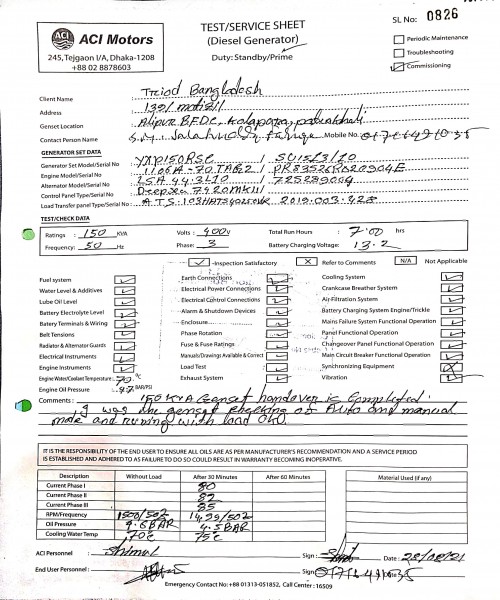 ACI
ACI Motors
245,Tejgaon I/A, Dhaka-1208
+88 02 8878603
TEST/SERVICE SHEET
(Diesel Generator)
Duty: Standby/Prime
SL No: 0826
Periodic Maintenance
Troubleshooting
Commissioning
Client Name : Triod Bangladesh
Address :
Genset Location : Alipur BFDC, Kalapara,
Contact Person Name : S.M. Mobile No.
GENERATOR SET DATA
Generator Set Model/Serial No :
Engine Model/Serial No : 1106A-70TAG2 /
Alternator Model/Serial No : LSA 44.3L10 /
Control Panel Type/Serial No : Deepsea 7420MKII
Load Transfer panel Type/Serial No : A.T.S- 2019.003.428
TEST/CHECK DATA
Ratings : 150 KVA Volts : 400V Total Run Hours : 7.00 hrs
Frequency: 50 Hz Phase : 3 Battery Charging Voltage: 13.2
-Inspection Satisfactory X Refer to Comments N/A Not Applicable
Fuel system
Water Level & Additives
Lube Oil Level
Battery Electrolyte Level
Battery Terminals & Wiring
Belt Tensions
Radiator & Alternator Guards
Electrical Instruments
Engine Instruments
Engine Water/Coolant Temperature 70 °C
Engine Oil Pressure 4.7 BAR/PSI
Earth Connections
Electrical Power Connections
Electrical Control Connections
Alarm & Shutdown Devices
Enclosure
Phase Rotation
Fuse & Fuse Ratings
Manuals/Drawings Available & Correct
Load Test
Exhaust System
Cooling System
Crankcase Breather System
Air Filtration System
Battery Charging System Engine/Trickle
Mains Failure System Functional Operation
Panel Functional Operation
Changeover Panel Functional Operation
Main Circuit Breaker Functional Operation
Synchronizing Equipment X
Vibration
Comments : 150 KVA Genset handover is Completed.
I was the genset checking of Auto and manual
mode and running with load Ok.
IT IS THE RESPONSIBILITY OF THE END USER TO ENSURE ALL OILS ARE AS PER MANUFACTURER'S RECOMMENDATION AND A SERVICE PERIOD
IS ESTABLISHED AND ADHERED TO AS FAILURE TO DO SO COULD RESULT IN WARRANTY BECOMING INOPERATIVE.
Description Without Load After 30 Minutes After 60 Minutes Material Used (if any)
Current Phase I 80
Current Phase II 82
Current Phase III 85
RPM/Frequency 1500/50Z 1499/50Z
Oil Pressure 4.6BAR 4.5BAR
Cooling Water Temp 70°C 75°C
ACI Personnel : Shimul Sign : Date : 28/08/21
End User Personnel : Sign :
Emergency Contact No: +88 01313-051852, Call Center : 16509